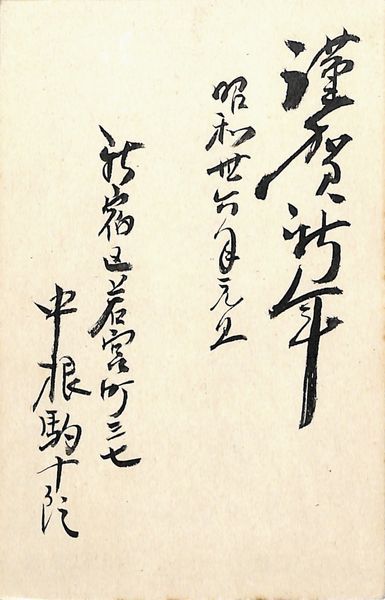 謹賀新年
昭和卅六年元旦
新宿区若宮町三七
中根駒十郎